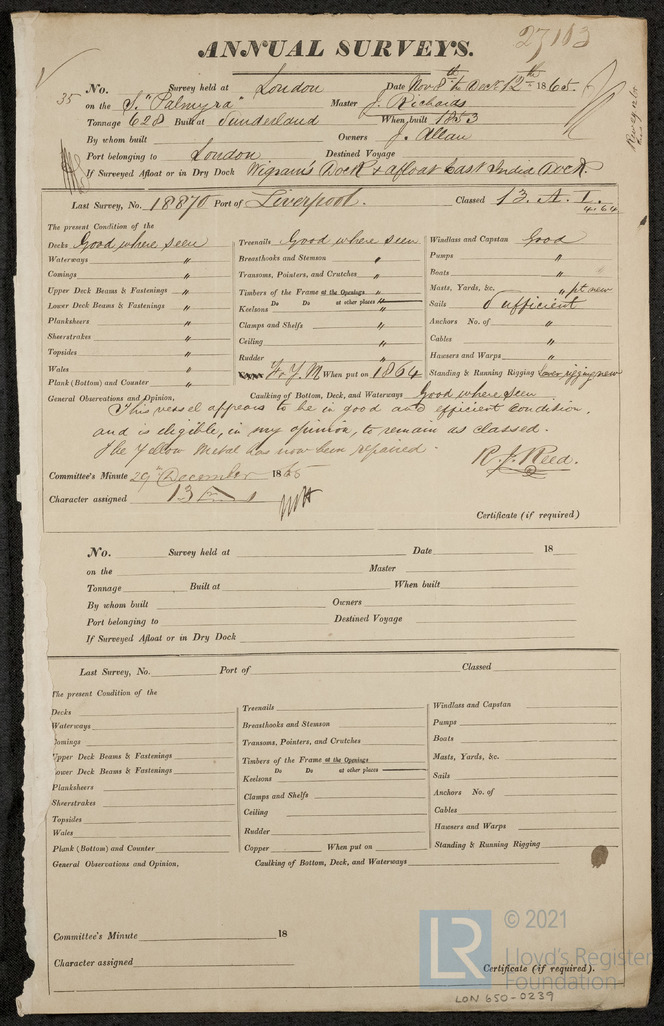 27113
ANNUAL SURVEYS.
35 No. Survey held at London Date Nov 8th to Decr 12th 1865.
on the S. "Palmyra" Master J. Richards
Tonnage 628 Built at Sunderland When built 1853
By whom built Owners J. Allan
Port belonging to London Destined Voyage
If Surveyed Afloat or in Dry Dock Wigram's Dock & afloat East India Dock.
Last Survey, No. 18870 Port of Liverpool. Classed 13. A. 1. 4.64
The present Condition of the
Decks Good where seen
Waterways "
Comings "
Upper Deck Beams & Fastenings "
Lower Deck Beams & Fastenings "
Planksheers "
Sheerstrakes "
Topsides "
Wales "
Plank (Bottom) and Counter "
Treenails Good where seen
Breasthooks and Stemson "
Transoms, Pointers, and Crutches "
Timbers of the Frame at the Openings "
Do Do at other places "
Keelsons "
Clamps and Shelfs "
Ceiling "
Rudder "
Fr Y.M When put on 1864
Windlass and Capstan Good
Pumps "
Boats "
Masts, Yards, &c. " pt new
Sails Sufficient
Anchors No. of "
Cables "
Hawsers and Warps "
Standing & Running Rigging lower rigging new
General Observations and Opinion, Caulking of Bottom, Deck, and Waterways Good where seen
This vessel appears to be in good and efficient condition,
and is eligible, in my opinion, to remain as classed.
The Yellow Metal has now been repaired.
R. J. Reed.
Committee's Minute 29th December 1865
Character assigned 13
Certificate (if required)
No. Survey held at Date 18
on the Master
Tonnage Built at When built
By whom built Owners
Port belonging to Destined Voyage
If Surveyed Afloat or in Dry Dock
Last Survey, No. Port of Classed
The present Condition of the
Decks
Waterways
Comings
Upper Deck Beams & Fastenings
Lower Deck Beams & Fastenings
Planksheers
Sheerstrakes
Topsides
Wales
Plank (Bottom) and Counter
Treenails
Breasthooks and Stemson
Transoms, Pointers, and Crutches
Timbers of the Frame at the Openings
Do Do at other places
Keelsons
Clamps and Shelfs
Ceiling
Rudder
Copper When put on
Windlass and Capstan
Pumps
Boats
Masts, Yards, &c.
Sails
Anchors No. of
Cables
Hawsers and Warps
Standing & Running Rigging
General Observations and Opinion, Caulking of Bottom, Deck, and Waterways
Committee's Minute 18
Character assigned
Certificate (if required).
LR © 2021
Lloyd's Register
Foundation
LON 650-0239